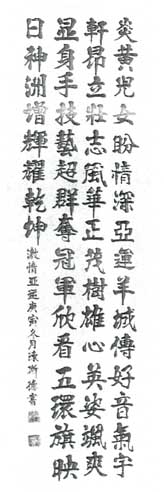 炎黃兒女盼情深亞運羊城傳好音氣宇
軒昂立壯志風華正茂樹雄心英姿颯爽
显身手技藝超群奪冠軍欣看五環旗映
日神洲增輝耀乾坤
激情亞运庚寅冬月斯德書